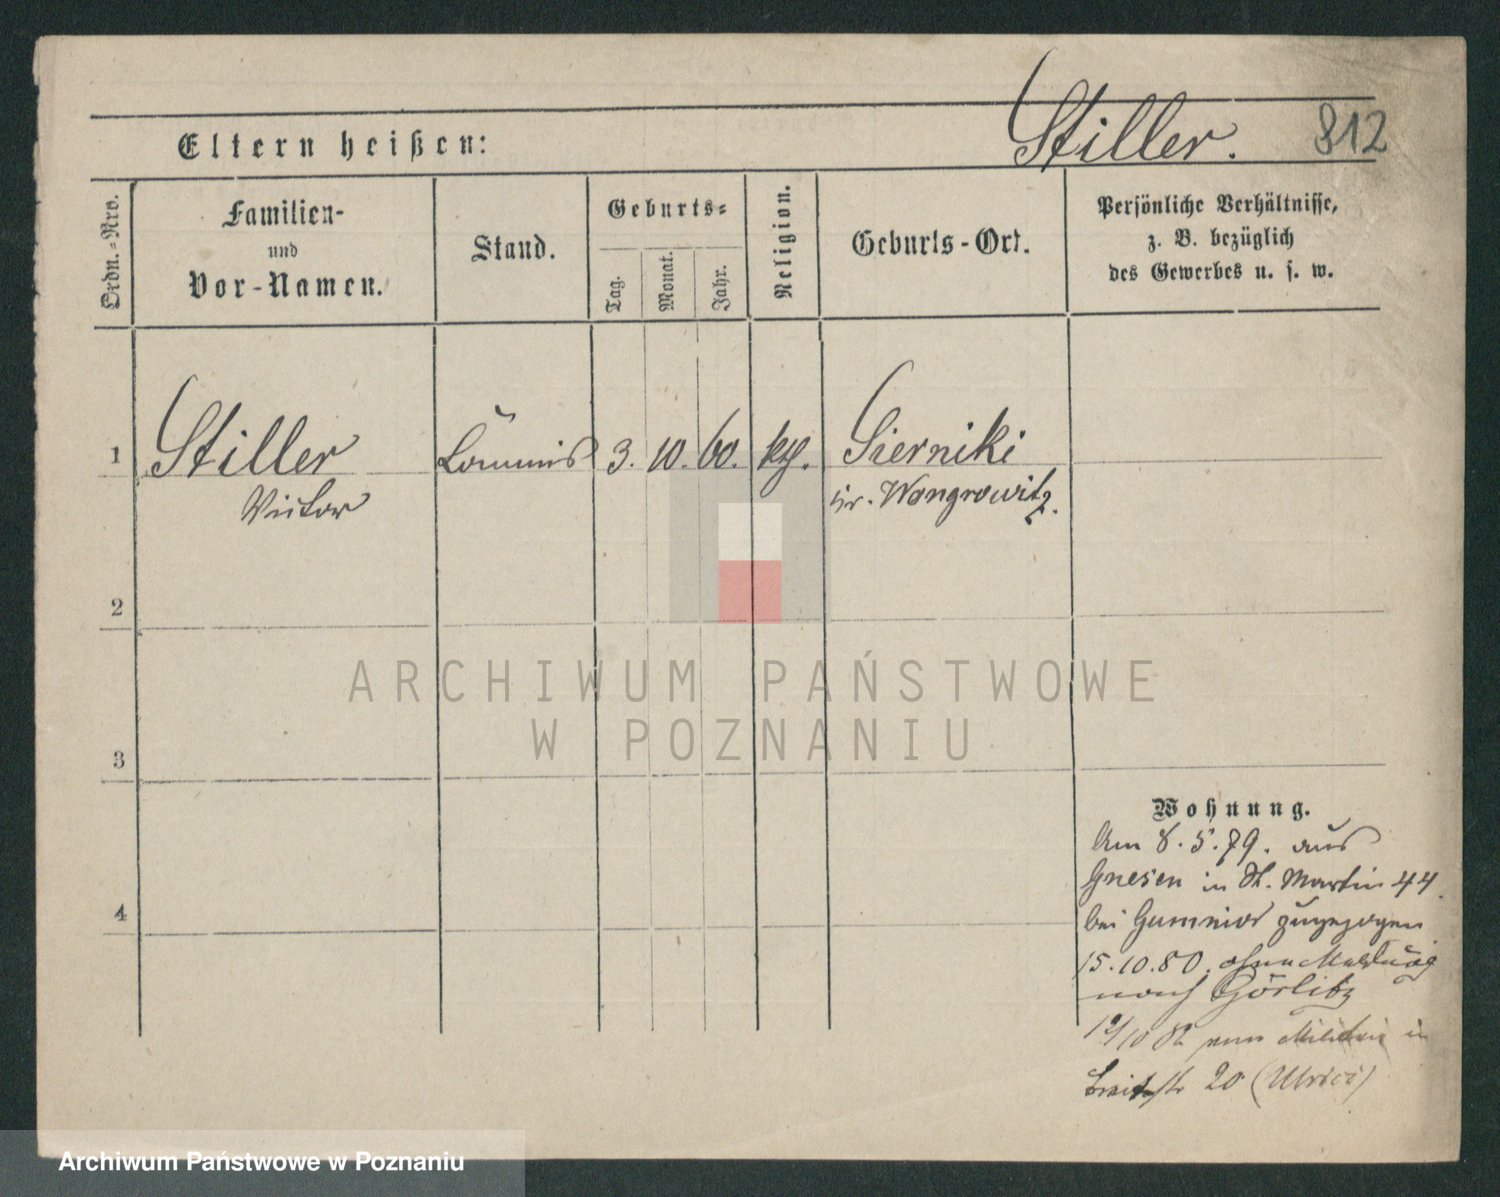 Stiller. 812
Eltern heißen:
Ordn.-Nro.
Familien-
und
Vor-Namen.
Stand.
Geburts-
Tag.
Monat.
Jahr.
Religion.
Geburts-Ort.
Persönliche Verhältnisse,
z. B. bezüglich
des Gewerbes u. s. w.
1 Stiller Commis 3. 10. 60. kth. Sierniki
Victor Kr. Wongrowitz.
2
3
4
ARCHIWUM PAŃSTWOWE
W POZNANIU
Wohnung.
Am 8.5.79. aus
Gnesen in St. Martin 44.
bei Gumnior zugezogen
15.10.80. ohne Meldung
nach Görlitz
/10 82 vom Militair in
Breitestr 20 (Ulrici)
Archiwum Państwowe w Poznaniu